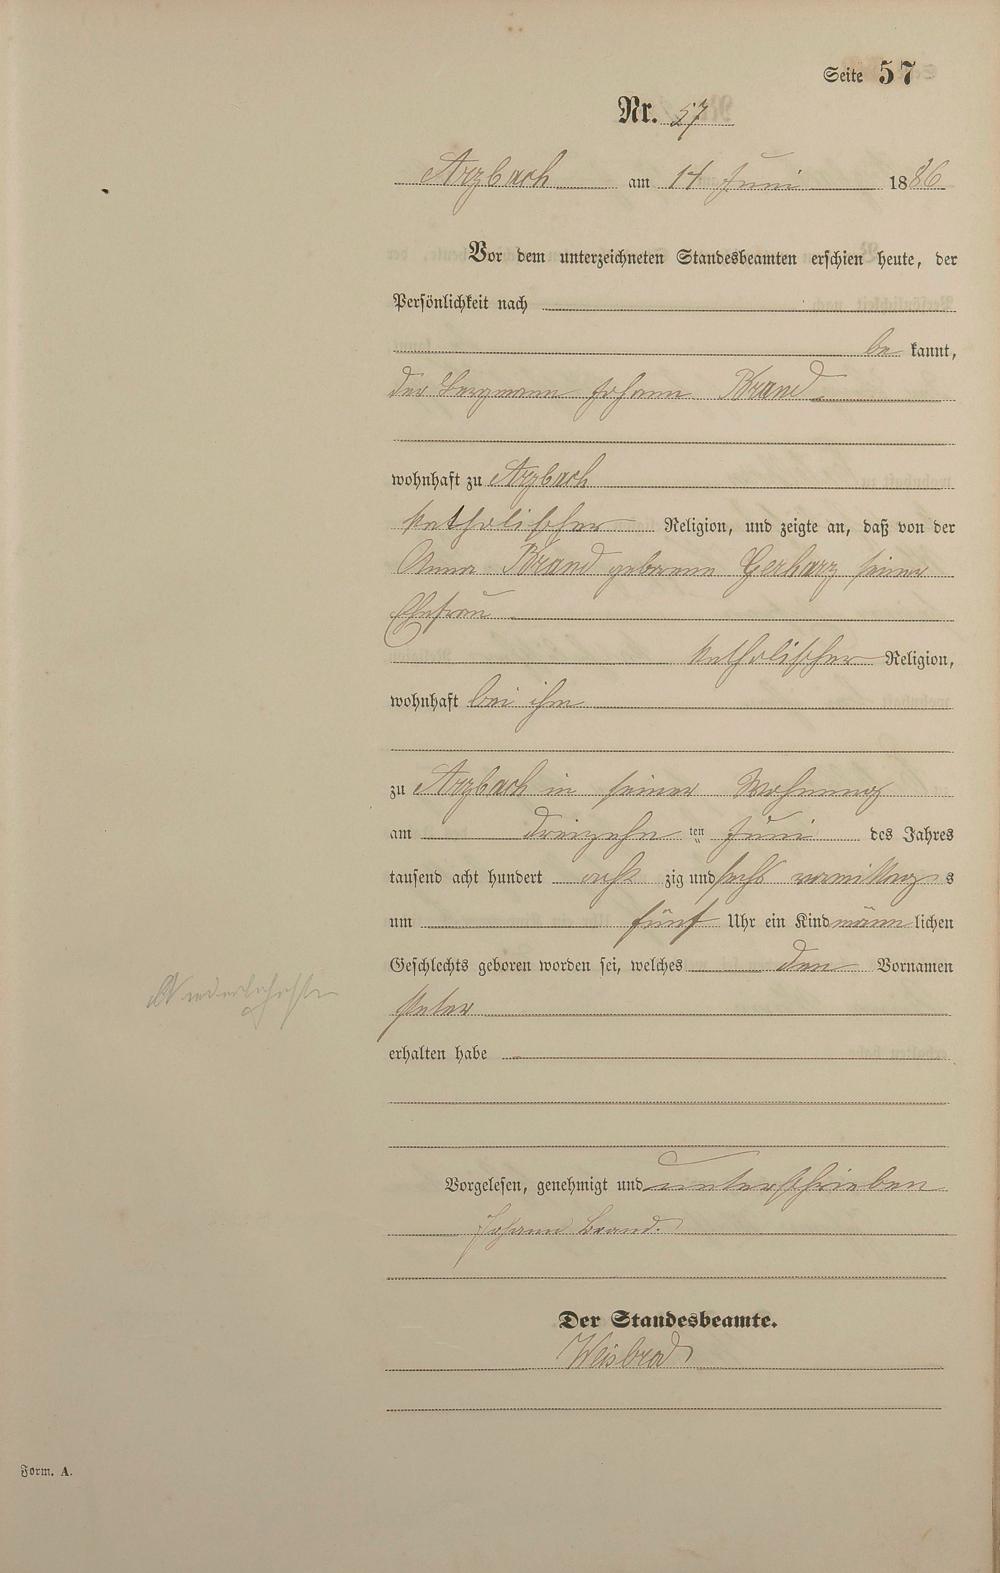 Seite 57
Nr. 57
Arzbach am 14 Juni 1886
Vor dem unterzeichneten Standesbeamten erschien heute, der
Persönlichkeit nach
be kannt,
der Bergmann Johann Brand
wohnhaft zu Arzbach
katholischer Religion, und zeigte an, daß von der
Anna Brand geborene Gerharz seiner
Ehefrau
katholischer Religion,
wohnhaft bei ihm
zu Arzbach in seiner Wohnung
am dreizehn ten Juni des Jahres
tausend acht hundert acht zig und sechs vormittag s
um fünf Uhr ein Kind männ lichen
Geschlechts geboren worden sei, welches den Vornamen
Peter
erhalten habe
Vorgelesen, genehmigt und unterschrieben
Johann Brand.
Der Standesbeamte.
Weisbrod
Form. A.